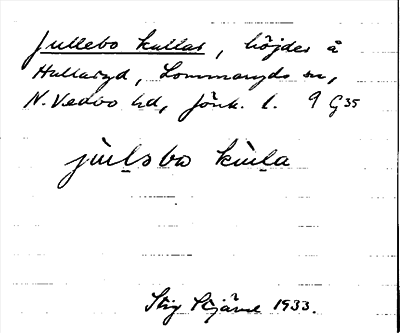 Jullebo kullar, höjder å
Hullaryd, Lommaryds sn,
N. Vedbo hd, Jönk. l. 9 G 35
jùl̲əbo kùl̲a
Stig Stjärne 1933.